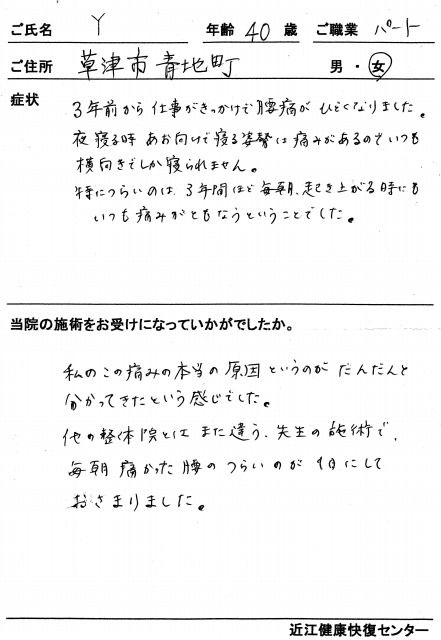 ご氏名 Y 年齢 40 歳 ご職業 パート
ご住所 草津市青地町 男・女
症状
3年前から仕事がきっかけで腰痛がひどくなりました。
夜寝る時あお向けで寝る姿勢は痛みがあるのでいつも
横向きでしか寝られません。
特につらいのは、3年間ほど毎朝、起き上がる時にも
いつも痛みがともなうということでした。
当院の施術をお受けになっていかがでしたか。
私のこの痛みの本当の原因というのがだんだんと
分かってきたという感じでした。
他の整体院とはまた違う、先生の施術で、
毎朝痛かった腰のつらいのが1日にして
おさまりました。
近江健康快復センター